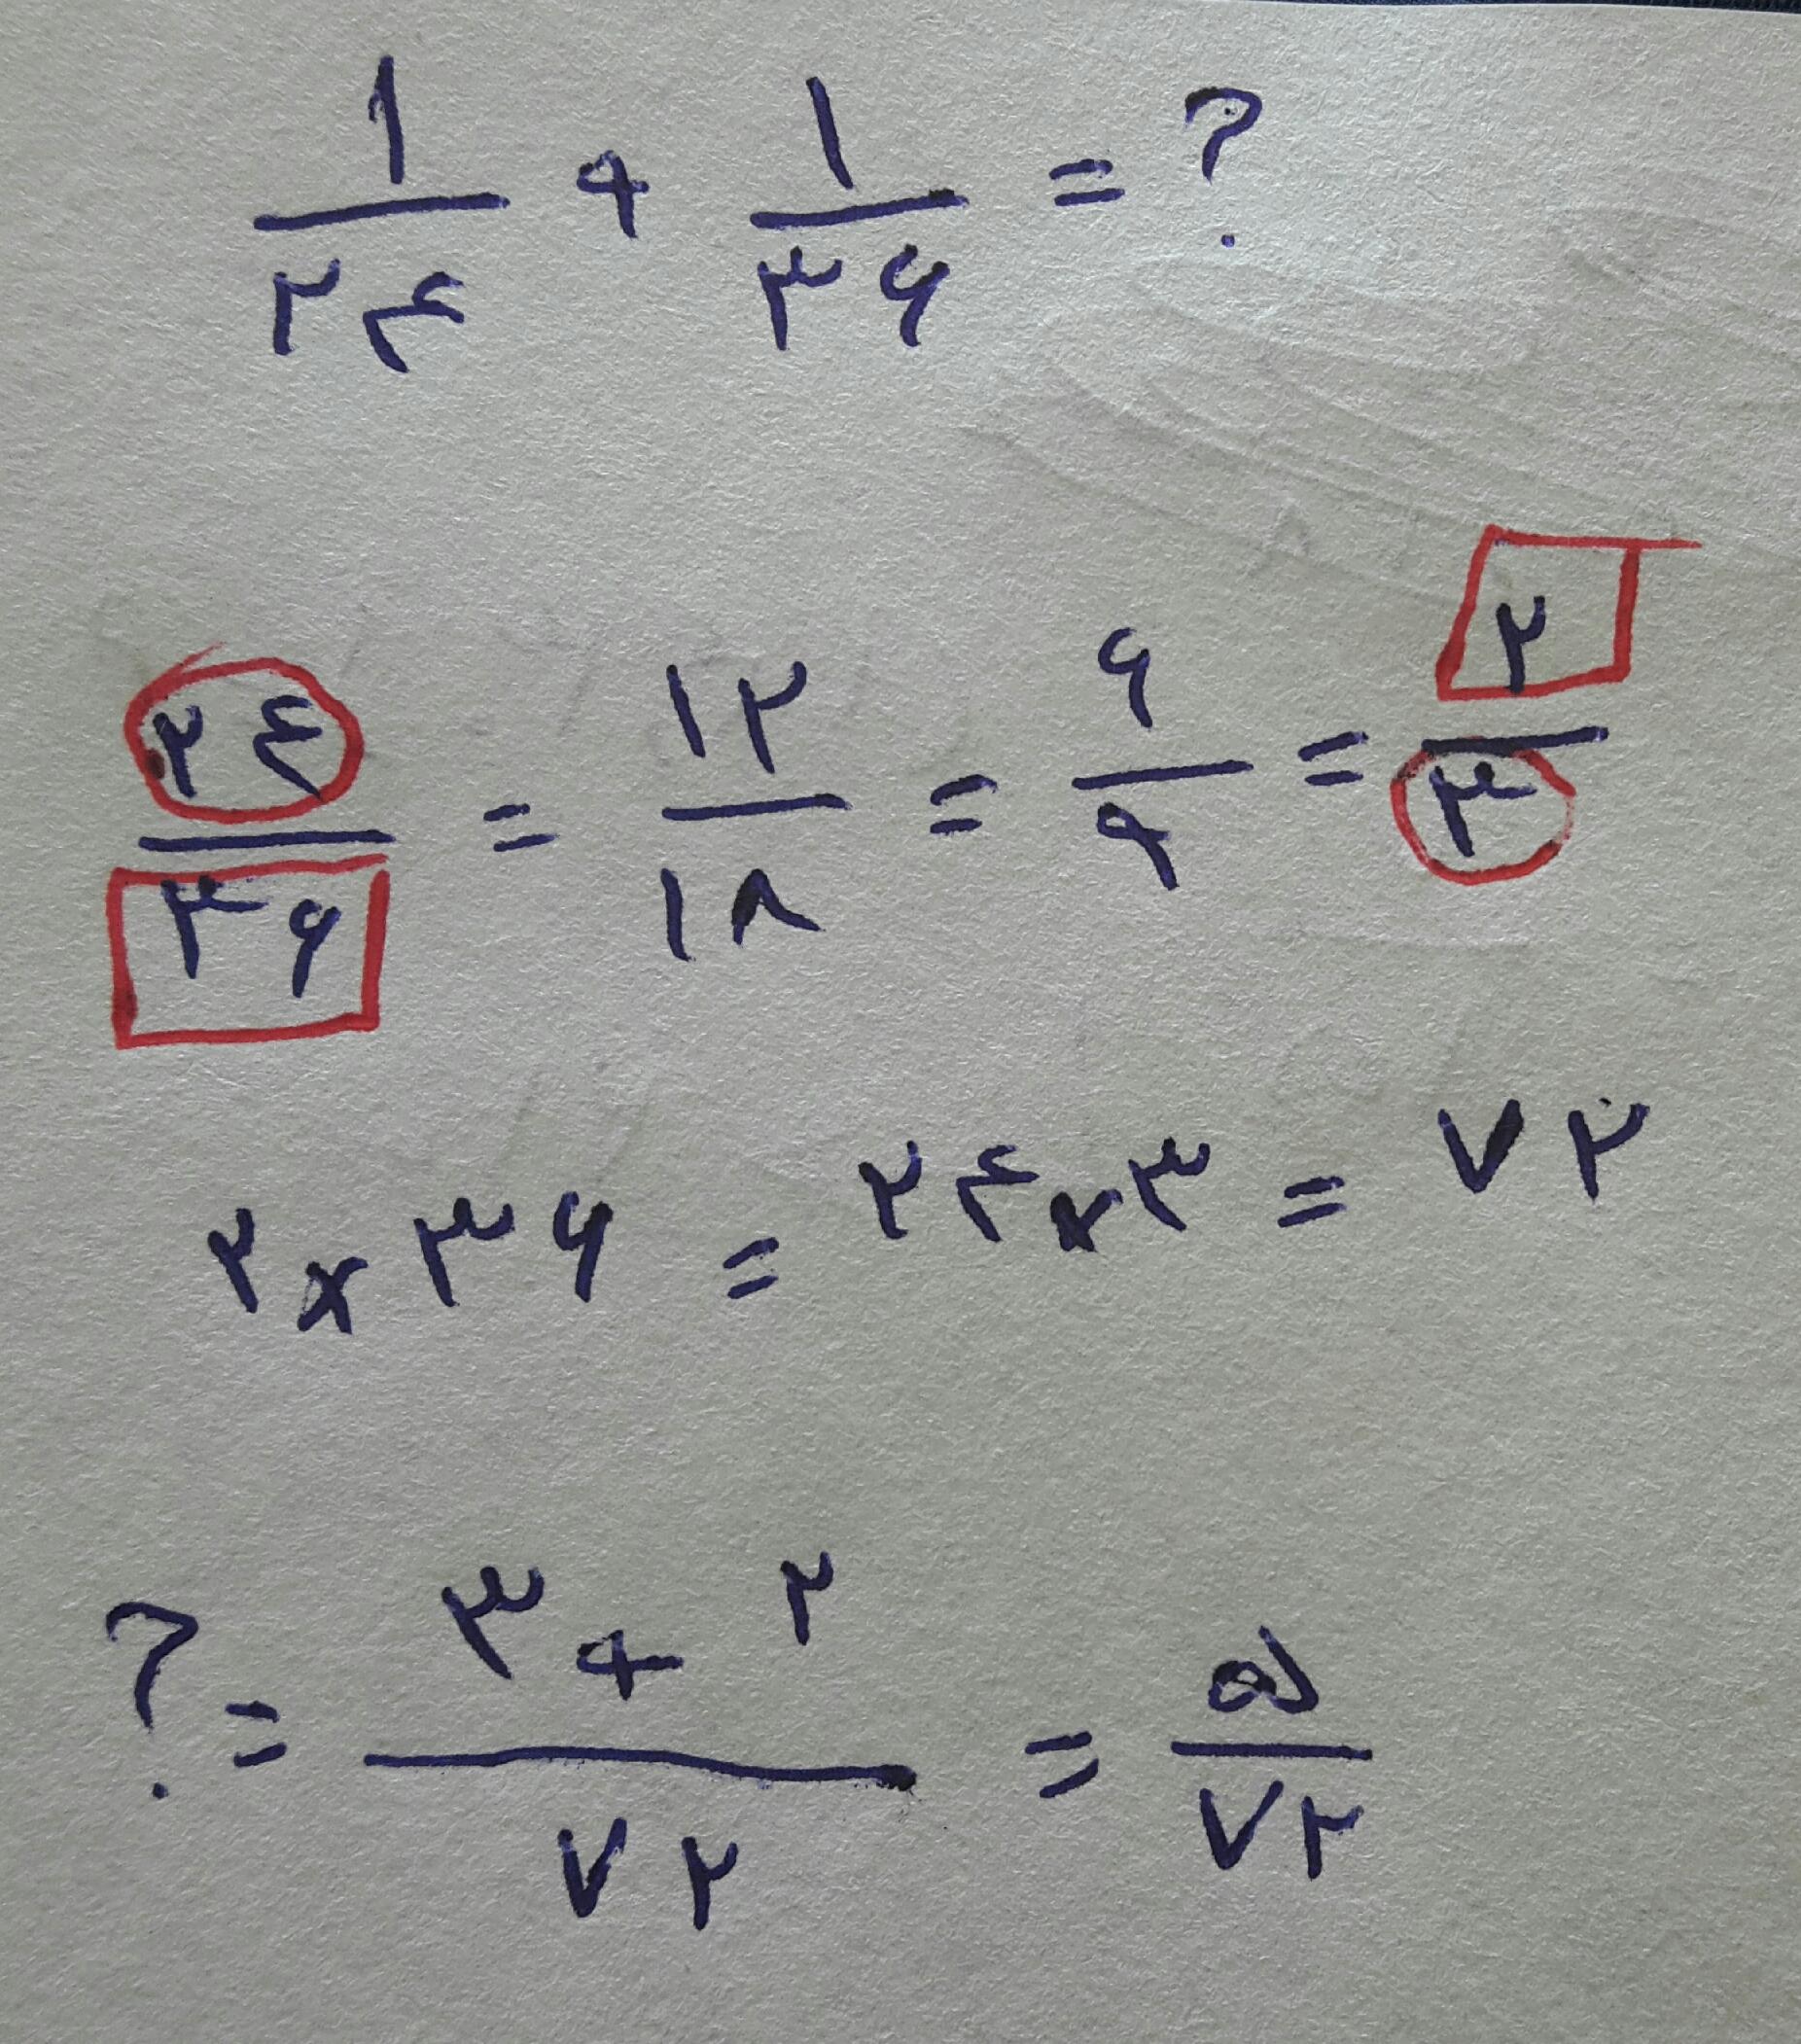 ۱/۲۴ + ۱/۳۶ = ?
۲۴/۳۶ = ۱۲/۱۸ = ۶/۹ = ۲/۳
۲ × ۳۶ = ۲۴ × ۳ = ۷۲
? = ۳ + ۲/۷۲ = ۵/۷۲